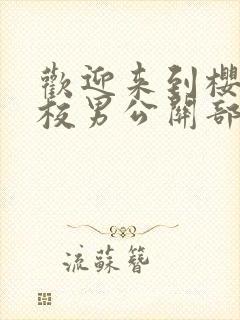 歡迎来到櫻
校男公關部
流蘇簪